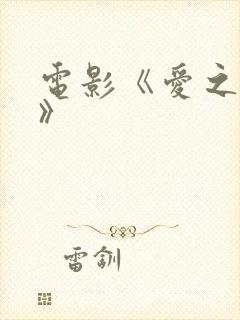 電影《愛之
》
雷釧